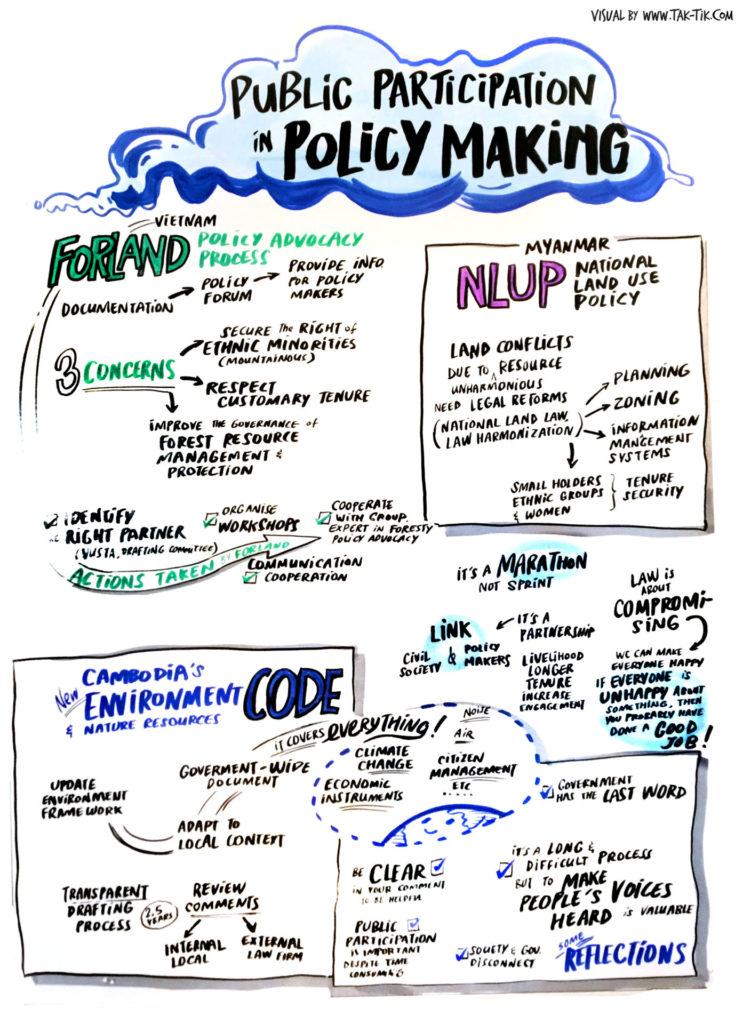 VISUAL BY WWW.TAK-TIK.COM
PUBLIC PARTICIPATION
in POLICY MAKING
VIETNAM
FORLAND
POLICY ADVOCACY
PROCESS
DOCUMENTATION
POLICY
FORUM
PROVIDE INFO
FOR POLICY
MAKERS
3 CONCERNS
SECURE the RIGHT of
ETHNIC MINORITIES
(MOUNTAINOUS)
RESPECT
CUSTOMARY TENURE
IMPROVE THE GOVERNANCE of
FOREST RESOURCE
MANAGEMENT &
PROTECTION
IDENTIFY
the RIGHT PARTNER
(VUSTA, DRAFTING COMMITTEE)
ORGANISE
WORKSHOPS
COOPERATE
WITH GROUP
EXPERT IN FORESTY
POLICY ADVOCACY
ACTIONS TAKEN by FORLAND
COMMUNICATION
COOPERATION
MYANMAR
NLUP
NATIONAL
LAND USE
POLICY
LAND CONFLICTS
DUE TO RESOURCE
UNHARMONIOUS
NEED LEGAL REFORMS
(NATIONAL LAND LAW,
LAW HARMONIZATION)
PLANNING
ZONING
INFORMATION
MANGEMENT
SYSTEMS
SMALL HOLDERS
ETHNIC GROUPS
& WOMEN
TENURE
SECURITY
IT'S A MARATHON
NOT SPRINT
LINK
CIVIL
SOCIETY & POLICY
MAKERS
IT'S A
PARTNERSHIP
LIVELIHOOD
LONGER
TENURE
INCREASE
ENGAGEMENT
LAW IS
ABOUT
COMPROMI-
SING
WE CAN MAKE
EVERYONE HAPPY
IF EVERYONE IS
UNHAPPY ABOUT
SOMETHING, THEN
YOU PROBABLY HAVE
DONE A GOOD
JOB!
New CAMBODIA'S
ENVIRONMENT CODE
& NATURE RESOURCES
IT COVERS EVERYTHING!
UPDATE
ENVIRONMENT
FRAMEWORK
GOVERMENT-WIDE
DOCUMENT
ADAPT TO
LOCAL CONTEXT
NOISE
AIR
CLIMATE
CHANGE
CITIZEN
MANAGEMENT
ETC.....
ECONOMIC
INSTRUMENTS
TRANSPARENT
DRAFTING
PROCESS
2.5
YEARS
REVIEW
COMMENTS
INTERNAL
LOCAL
EXTERNAL
LAW FIRM
GOVERNMENT
HAS the LAST WORD
BE CLEAR
IN YOUR COMMENT
TO BE HELPFUL
IT'S A LONG &
DIFFICULT PROCESS
BUT TO MAKE
PEOPLE'S VOICES
HEARD is VALUABLE
PUBLIC
PARTICIPATION
IS IMPORTANT
DESPITE TIME
CONSUMING
SOCIETY & GOV.
DISCONNECT
SOME
REFLECTIONS